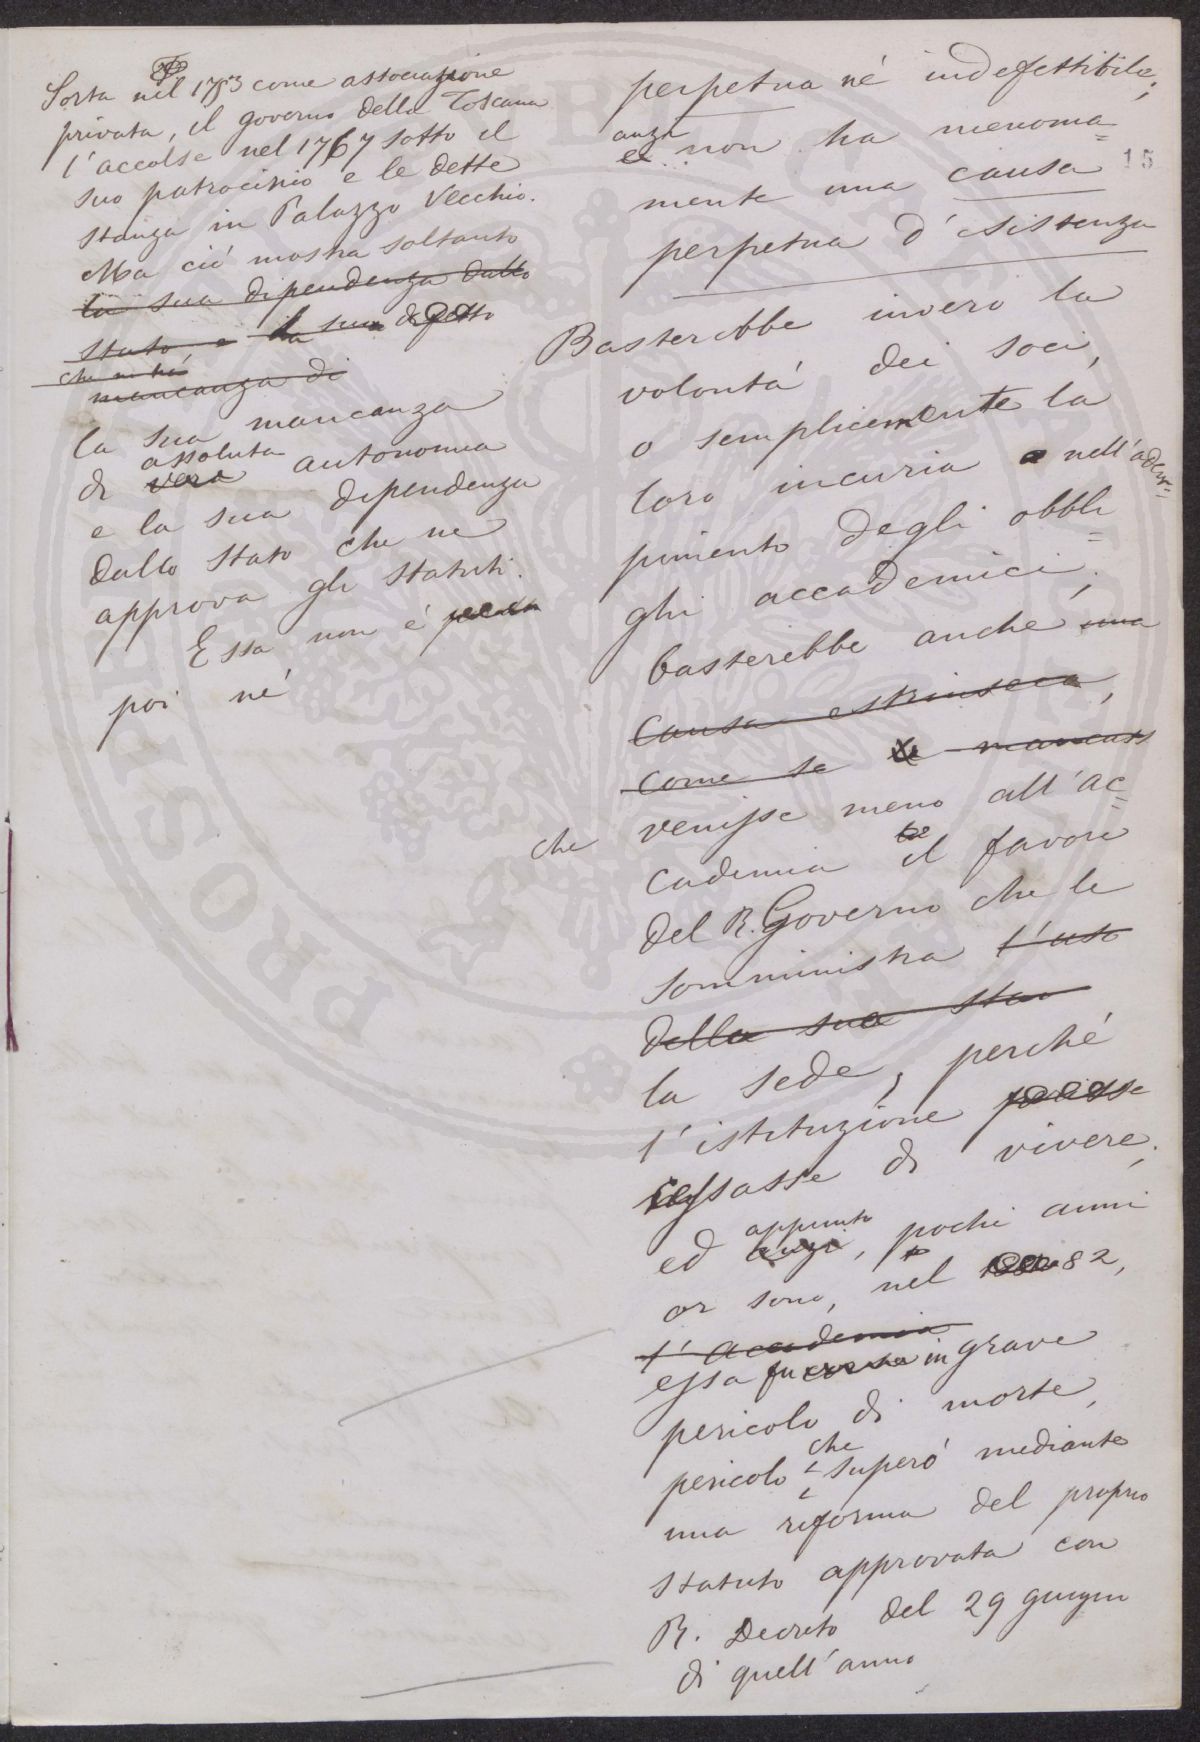 Sorta nel 1753 come associazione
privata, il governo della Toscana
l'accolse nel 1767 sotto il
suo patrocinio e le dette
stanza in Palazzo Vecchio.
Ma ciò mostra soltanto
la sua dipendenza dallo
stato e la sua
che ne ha
mancanza di
la sua mancanza
assoluta
di vera autonomia
e la sua dipendenza
dallo stato che ne
approva gli statuti.
Essa non è
poi né
perpetua né indefettibile;
anzi
non ha menoma=
mente una causa
perpetua d'esistenza
15
Basterebbe invero la
volontà dei soci,
o semplicemente la
loro incuria nell'adem=
pimento degli obbli=
ghi accademici;
basterebbe anche una
causa estrinseca,
come se mancasse
che venisse meno all'ac=
cademia il favore
del R. Governo che le
somministra l'uso
della sua stan
la sede, perché
l'istituzione
cessasse di vivere;
appunto
ed anzi, pochi anni
or sono, nel 1882,
l'Accademia
essa fu corsa in grave
pericolo di morte,
che
pericolo superò mediante
una riforma del proprio
statuto approvata con
R. Decreto del 29 giugno
di quell'anno
PROSPERITÀ